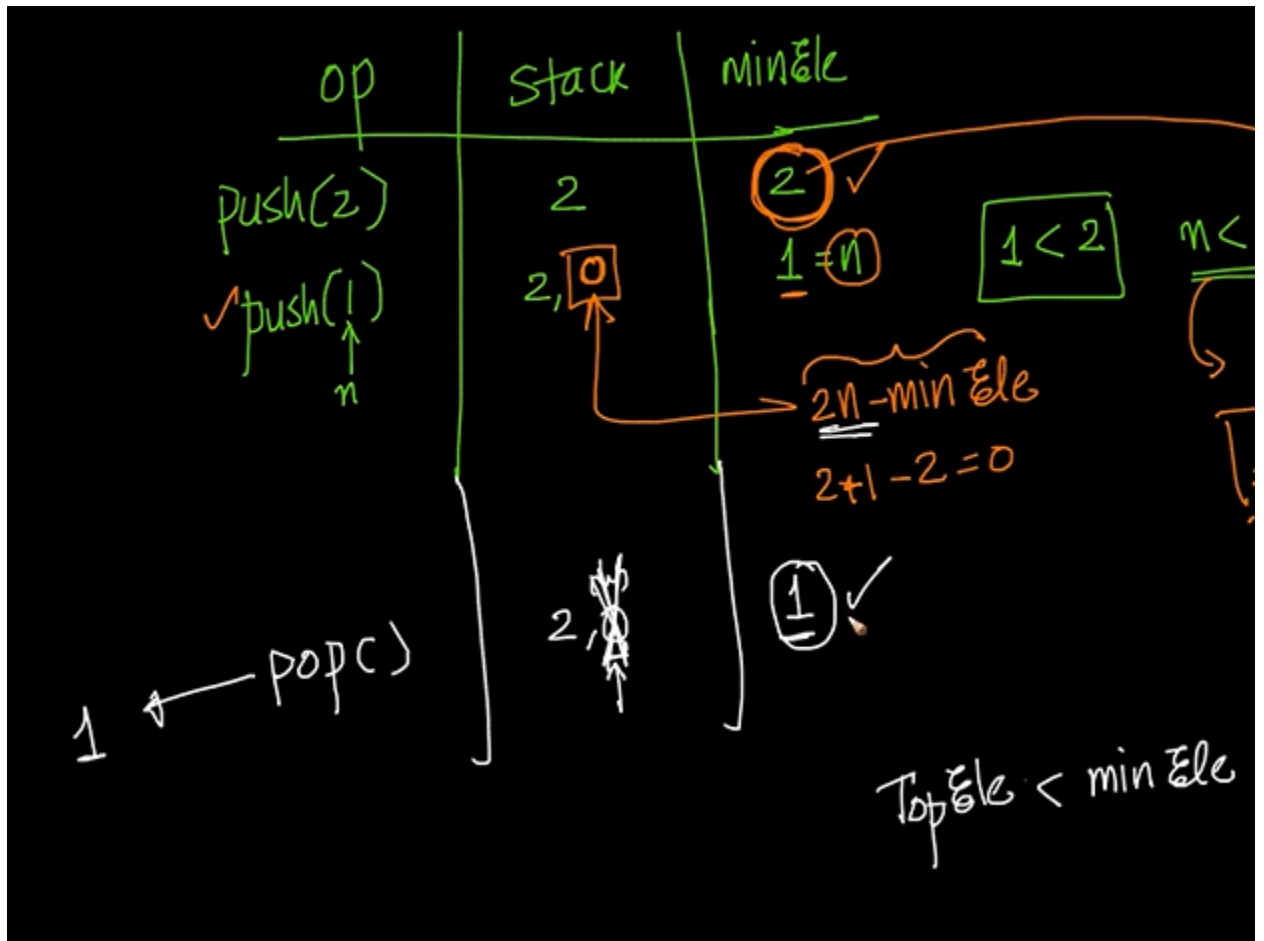 op stack minEle
push(2) 2 2
push(1) 2, 0 1 = n 1 < 2 n <
n
2n - minEle
2*1 - 2 = 0
2, 1
1 pop()
TopEle < minEle